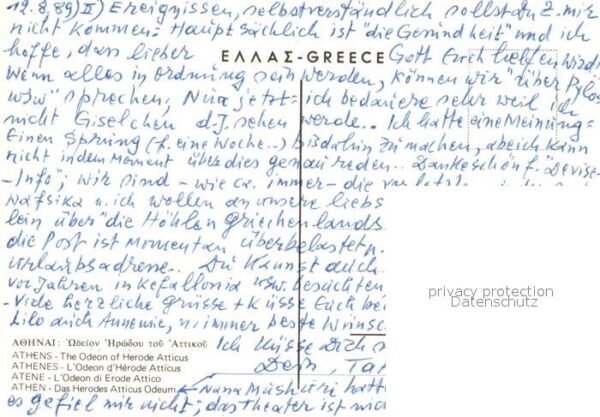 12.8.89) II) Ereignissen, selbstverständlich sollst du z. mir
nicht kommen: Hauptsächlich ist "die Gesundheit" und ich
hoffe, dass lieber Gott Euch helfen wird!
ΕΛΛΑΣ-GREECE
Wenn alles in Ordnung sein werden, können wir "über Pylos
usw" sprechen, Nur jetzt - ich bedauere sehr weil ich
nicht Giselchen d.J. sehen werde.. Ich hatte eine Meinung =
Einen Sprung (f. eine Woche..) bis dahin zu machen, aber ich kann
nicht in dem Moment über dies genau reden.. Dankeschön f. "Devise-
-Info"; wir sind - wie ca. immer - die
Nafsika u. ich wollen an unsere liebs
lein über "die Höhlen Griechenlands
die Post ist momentan überbelastet n.
Urlaubsadresse.. Du kannst auch
vor Jahren in Kefallonia usw. besuchten
- Viele herzliche Grüsse + Küsse Euch bei
Lilo auch Annemie, n. immer beste Wünsc
Ich küsse Dich s
Dein, Tak
ΑΘΗΝΑΙ: Ὠδεῖον Ἡρώδου τοῦ Ἀττικοῦ
ATHENS - The Odeon of Herode Atticus
ATHENES - L'Odeon d'Hérode Atticus
ATENE - L'Odeon di Erode Attico
ATHEN - Das Herodes Atticus Odeum
← Nana Mushuri hatt
es gefiel mir nicht; das Theater ist nic
privacy protection
Datenschutz